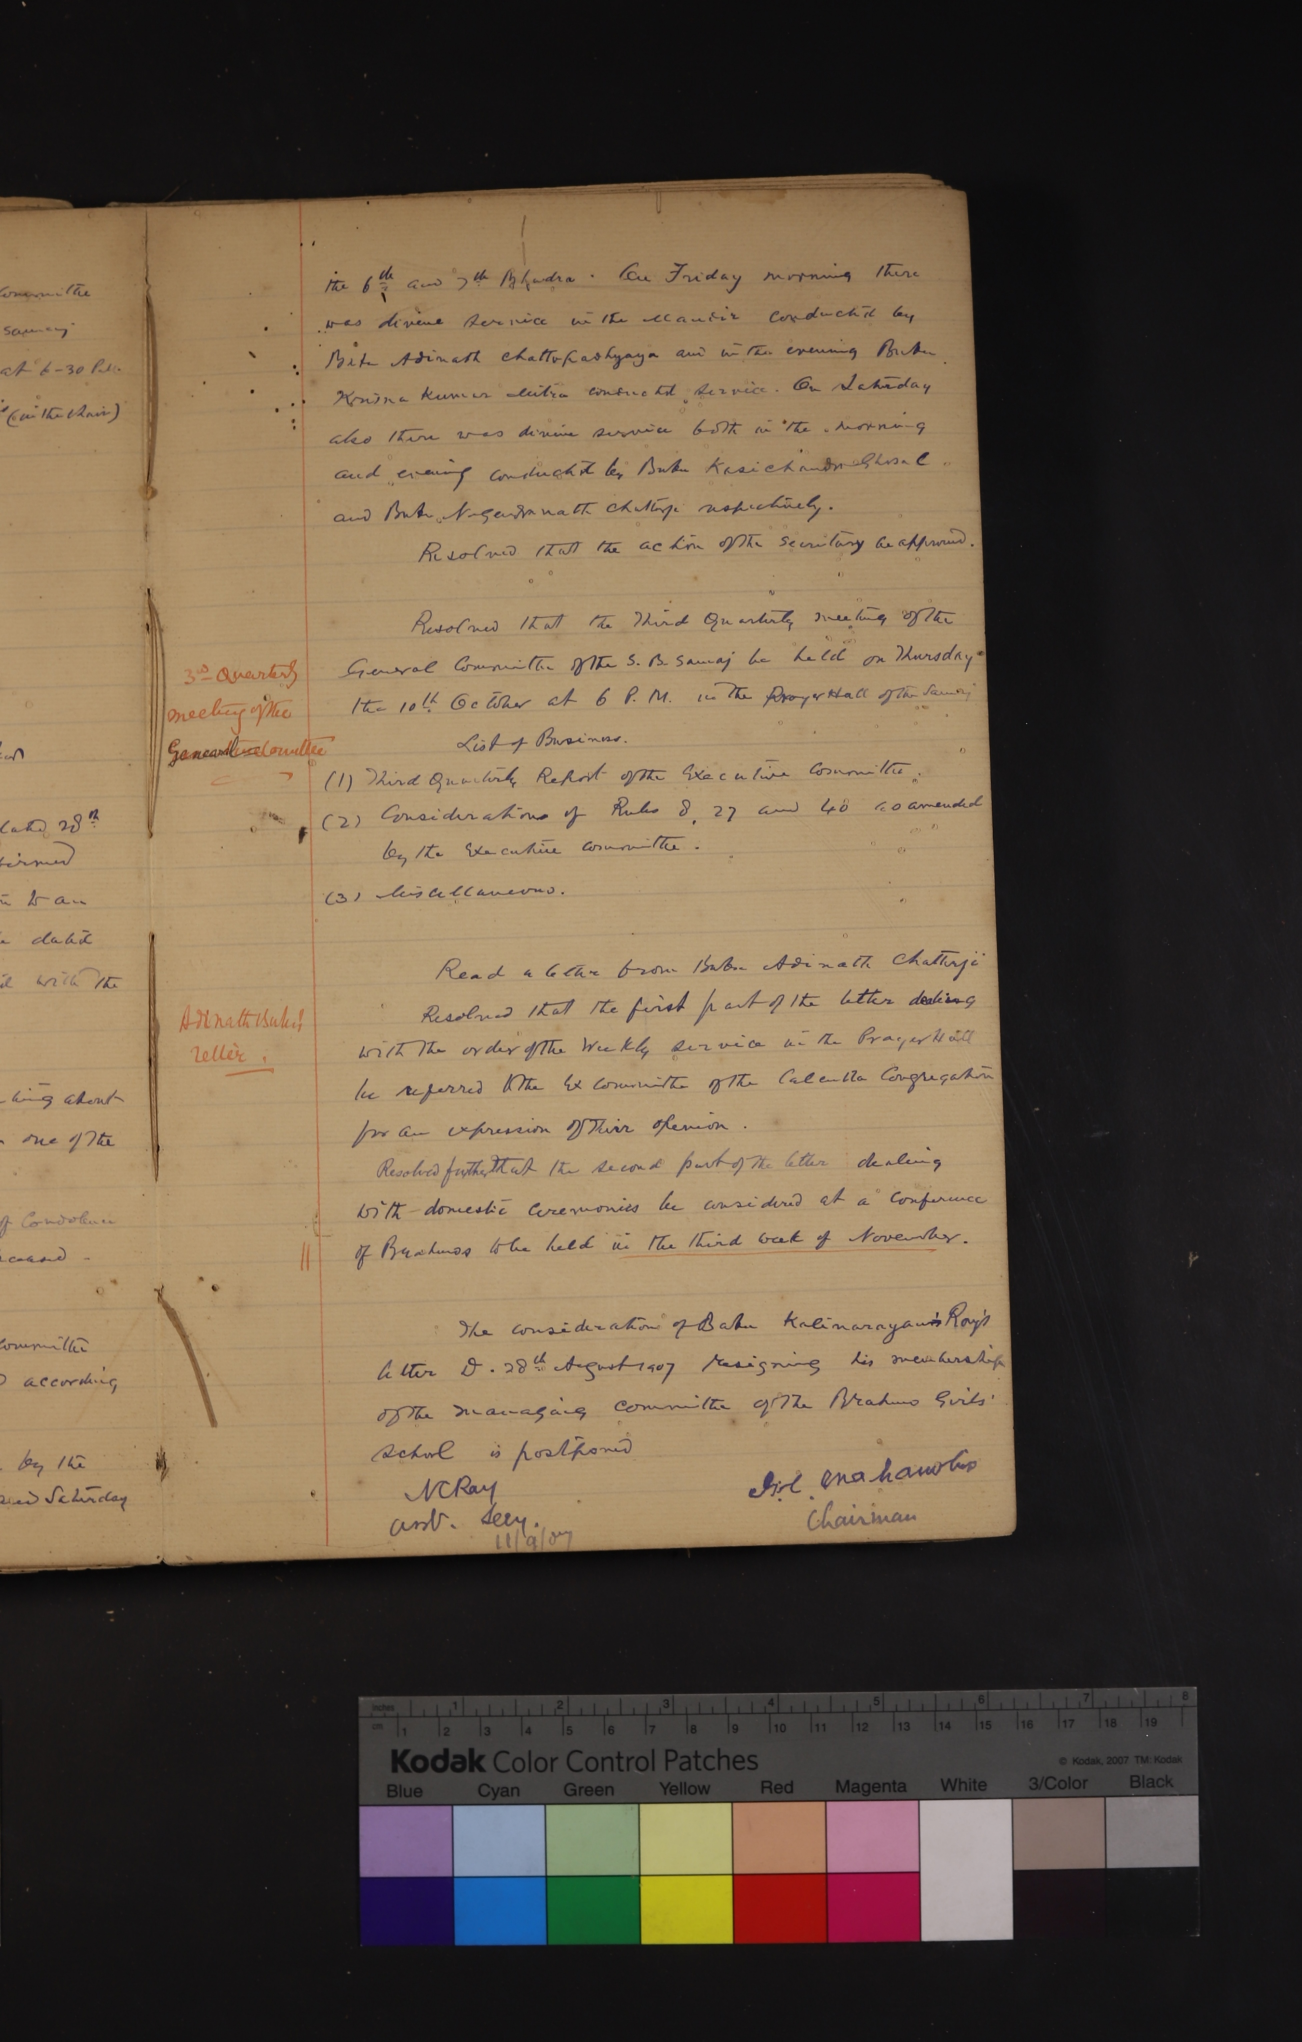 Committee
Samaj
at 6-30 P.M.
(in the chair)
dated 28th
confirmed
to an
dated
with the
about
one of the
of Condolence
deceased -
Committee
according
by the
and Saturday
the 6th and 7th Bhadra. On Friday morning there
was divine service in the Mandir conducted by
Babu Adinath Chattopadhyaya and in the evening Babu
Krisna Kumar Mitra conducted service. On Saturday
also there was divine service both in the morning
and evening conducted by Babu Kasichandra Ghosal
and Babu Nagendranath Chatterji respectively.
Resolved that the action of the Secretary be approved.
3rd Quarterly
meeting of the
General Committee
Resolved that the Third Quarterly meeting of the
General Committee of the S. B. Samaj be held on Thursday
the 10th October at 6 P.M. in the Prayer Hall of the Samaj
List of Business.
(1) Third Quarterly Report of the Executive Committee.
(2) Considerations of Rules 8, 27 and 40 as amended
by the Executive Committee.
(3) Miscellaneous.
Adinath Babu's
letter.
Read a letter from Babu Adinath Chatterji
Resolved that the first part of the letter dealing
with the order of the Weekly service in the Prayer Hall
be referred to the Ex Committee of the Calcutta Congregation
for an expression of their opinion.
Resolved further that the second part of the letter dealing
with domestic ceremonies be considered at a Conference
of Brahmos to be held in the third week of November.
The consideration of Babu Kalinarayan Roy's
letter D. 28th August 1907 resigning his membership
of the managing committee of the Brahmo Girls'
School is postponed
NCRay
Asst. Secy.
11/9/07
Mahanobis
Chairman
inches 1 2 3 4 5 6 7 8
cm 1 2 3 4 5 6 7 8 9 10 11 12 13 14 15 16 17 18 19
Kodak Color Control Patches
© Kodak, 2007 TM: Kodak
Blue Cyan Green Yellow Red Magenta White 3/Color Black